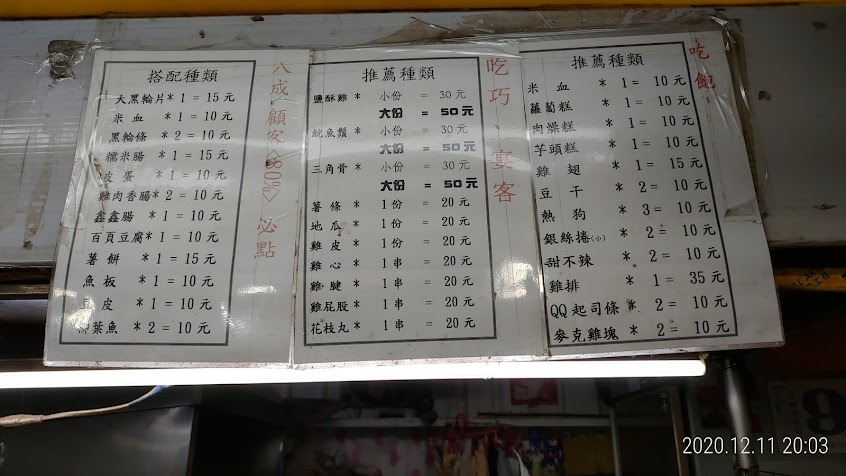 搭配種類
大黑輪片*1=15元
米血*1=10元
黑輪條*2=10元
糯米腸*1=15元
皮蛋*1=10元
雞肉香腸*2=10元
鑫鑫腸*1=10元
百頁豆腐*1=10元
薯餅*1=15元
魚板*1=10元
豆皮*1=10元
柳葉魚*2=10元
八成顧客(80%)必點
推薦種類
鹽酥雞*小份=30元
大份=50元
魷魚鬚*小份=30元
大份=50元
三角骨*小份=30元
大份=50元
薯條*1份=20元
地瓜*1份=20元
雞皮*1份=20元
雞心*1串=20元
雞腱*1串=20元
雞屁股*1串=20元
花枝丸*1串=20元
吃巧、宴客
推薦種類
米血*1=10元
蘿蔔糕*1=10元
肉燥糕*1=10元
芋頭糕*1=10元
雞翅*1=15元
豆干*2=10元
熱狗*3=10元
銀絲捲(小)*2=10元
甜不辣*2=10元
雞排*1=35元
QQ起司條*2=10元
麥克雞塊*2=10元
吃飽
9
2020.12.11 20:03